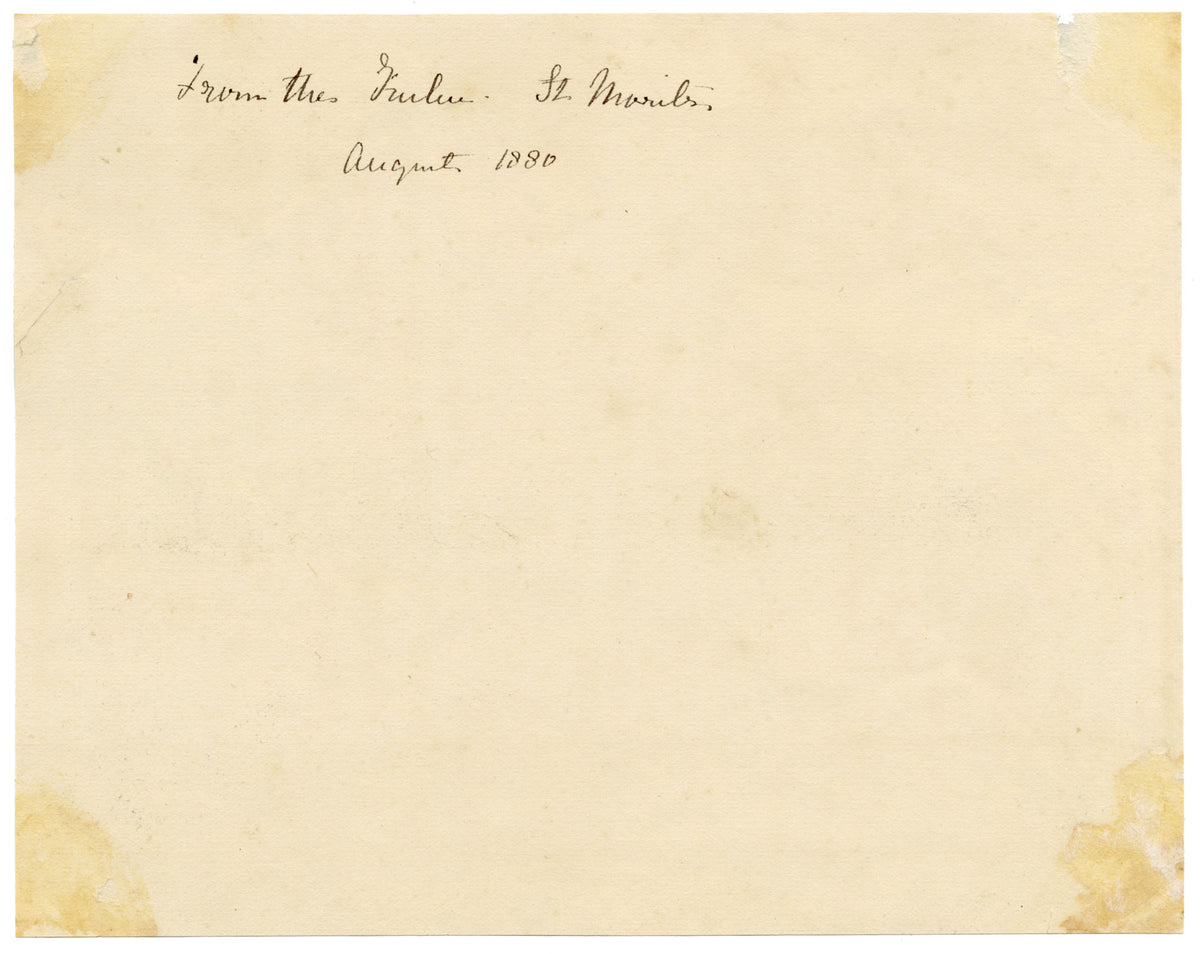 From the Kulm. St Moritz
August 1880